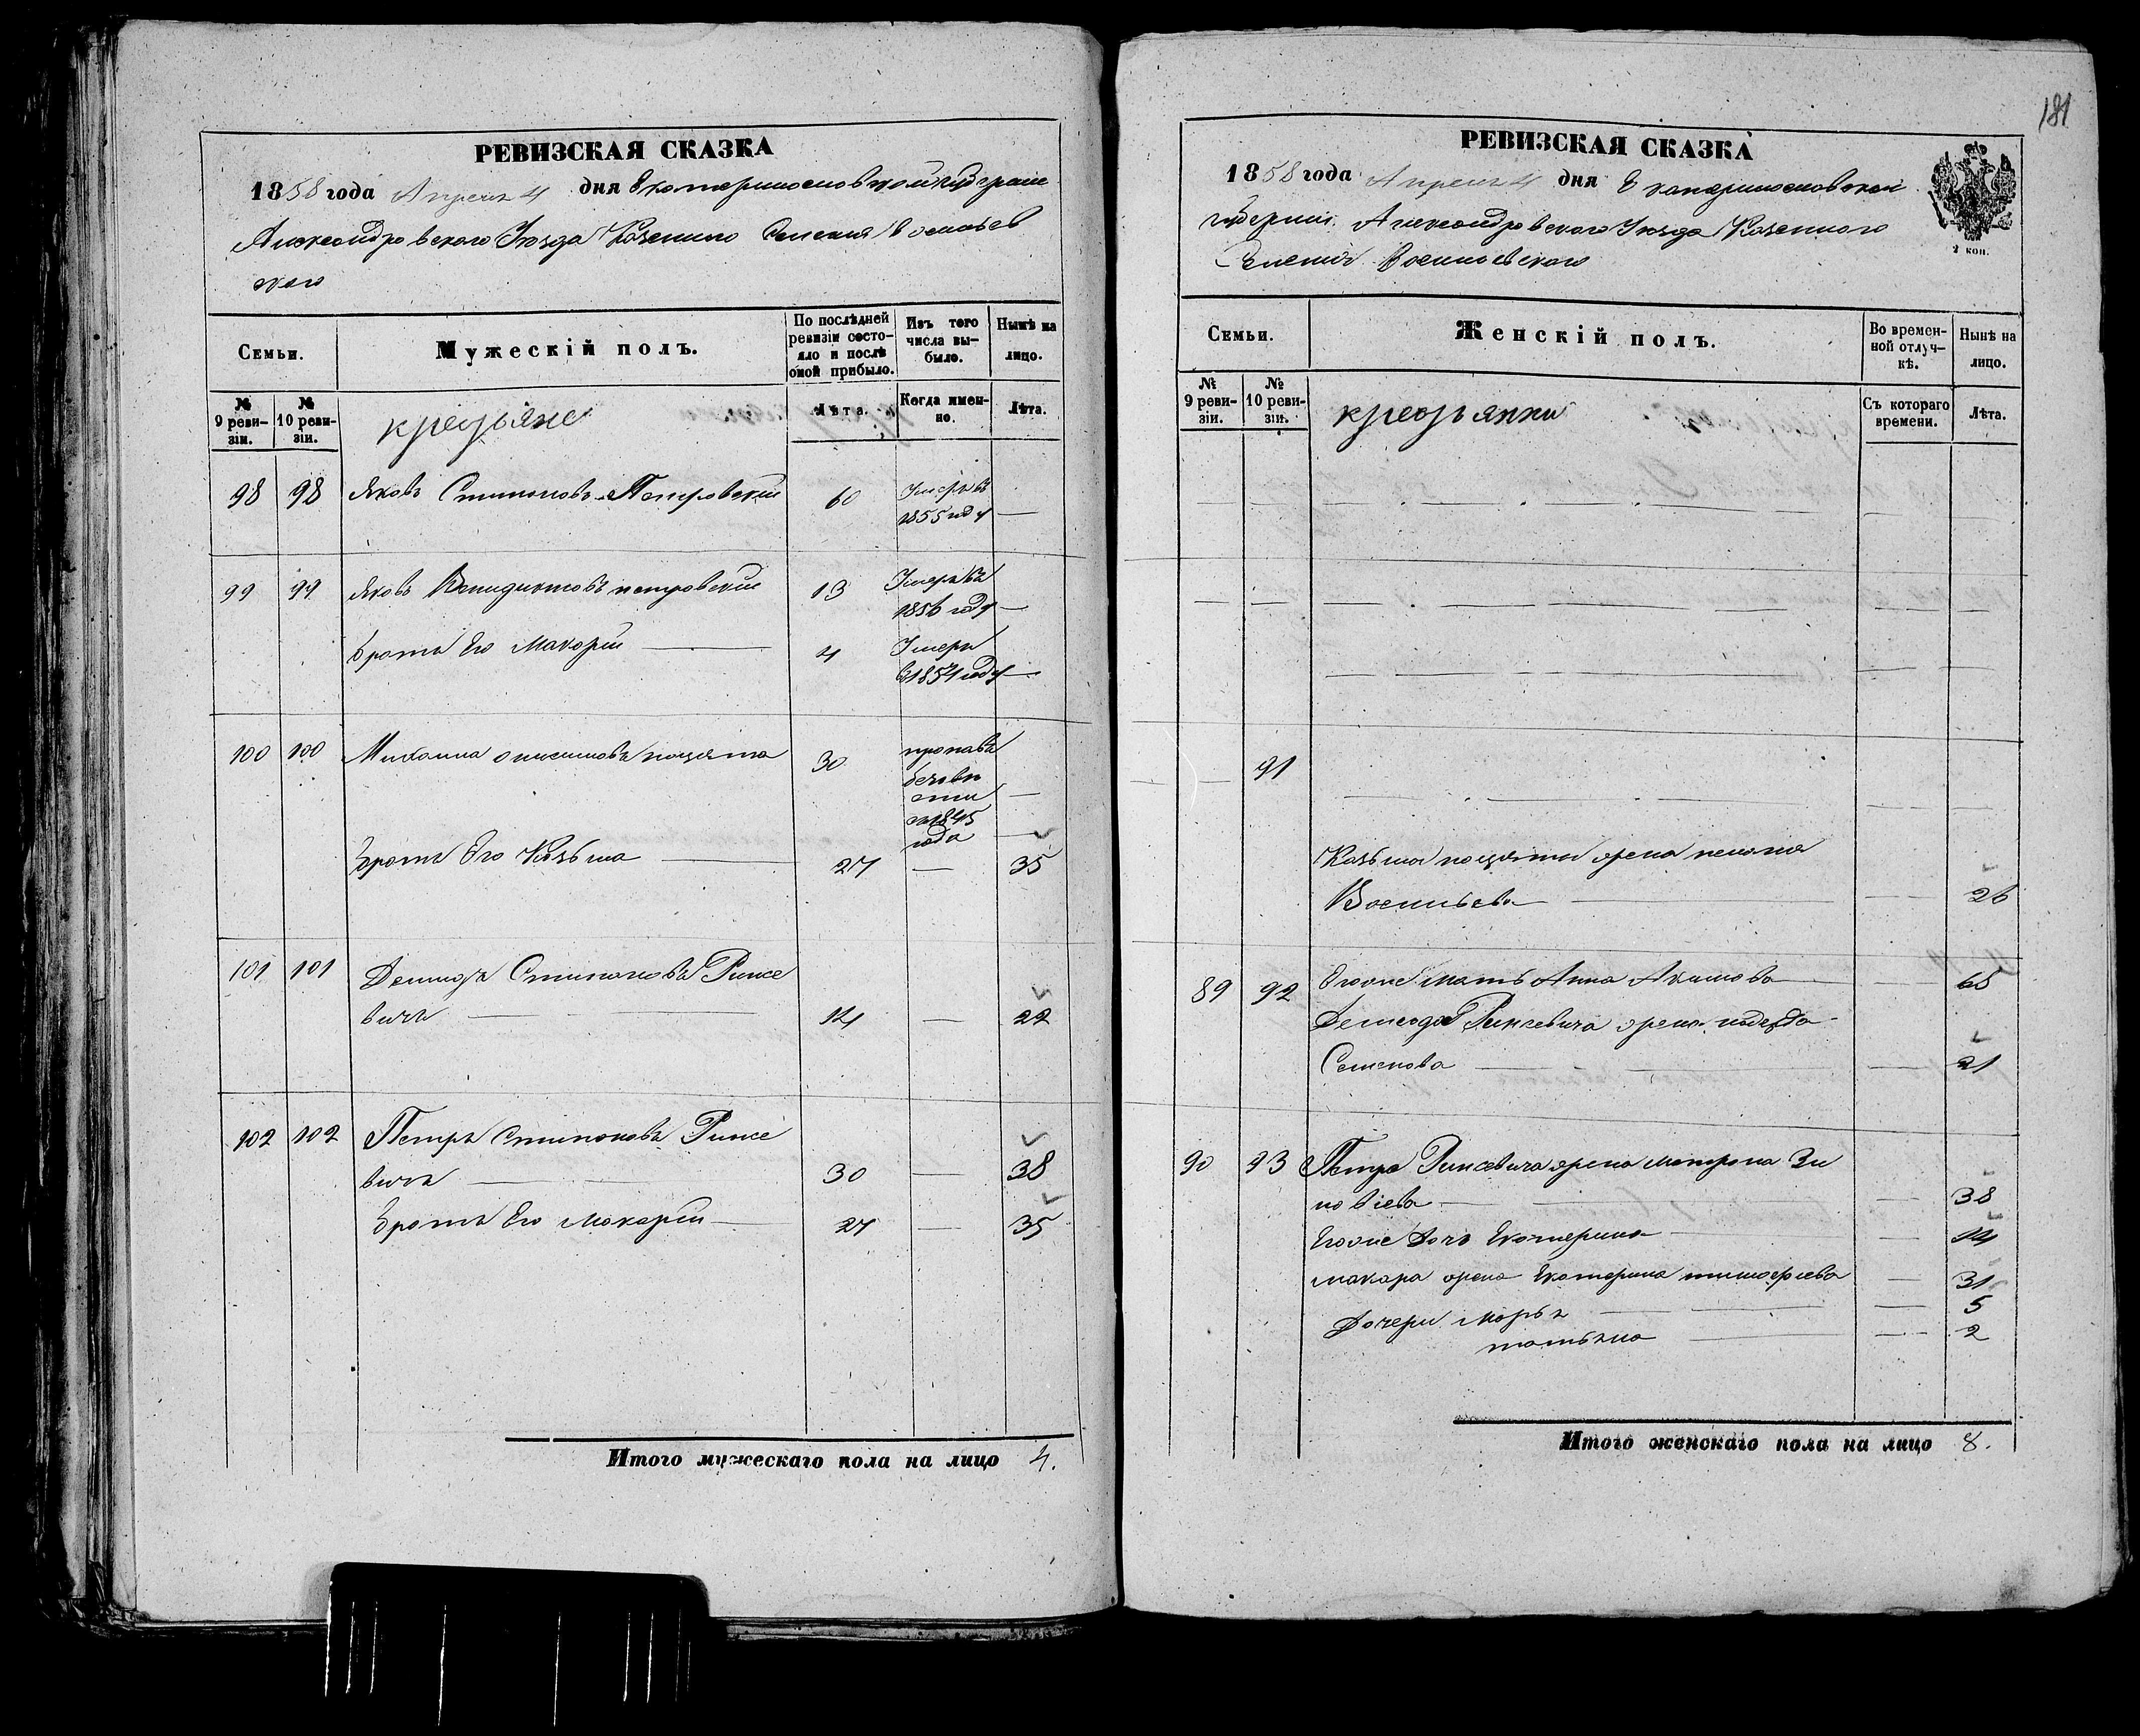 РЕВИЗСКАЯ СКАЗКА
1858 года Апреля 4 дня Екатеринославской губернии
Александровского Уезда Казенного Селения Васильев
ского
Семьи.
Мужескій полъ.
По послѣдней ревизіи состояло и послѣ оной прибыло.
Изъ того числа выбыло.
Нынѣ на лицо.
№ 9 ревизіи.
№ 10 ревизіи.
крестьяне
Лѣта.
Когда именно.
Лѣта.
98 98 Яковъ Стипоновъ Петровскій 60 Умеръ въ
1855 году —
99 99 Яковъ Венидиктовъ петровскій 13 Умеръ въ
1856 году —
братъ Его Макарій — 4 Умеръ
в 1854 году —
100 100 Михаила онисимовъ 30 пропавъ
безвѣ
сти —
съ 1845
года —
братъ Его Козьма — 27 — 35
101 101 Демидъ Стипановъ Ринсе
вичъ — 14 — 22
102 102 Петръ Стипоновъ Ринсе
вичъ — 30 — 38
братъ Его Макарій — 27 — 35
Итого мужескаго пола на лицо 4.
181
РЕВИЗСКАЯ СКАЗКА
1858 года Апреля 4 дня Екатеринославской
губернии Александровского Уезда Казенного
Селения Васильевского
2 коп.
Семьи.
Женскій полъ.
Во временной отлучкѣ.
Нынѣ на лицо.
№ 9 ревизіи.
№ 10 ревизіи.
крестьянки
Съ котораго времени.
Лѣта.
— 91
Козьма жена пелагия
Васильева — 26
89 92 Егоже мать Анна Акимова — 65
Демида Ринсевича жена надежда
Семенова — 21
90 93 Петра Ринсевича жена матрона Зи
новіева — 38
Егоже дочь Екатерина — 14
макара жена Екатерина тимофиева — 31
Дочери марья — 5
татьяна — 2
Итого женскаго пола на лицо 8.